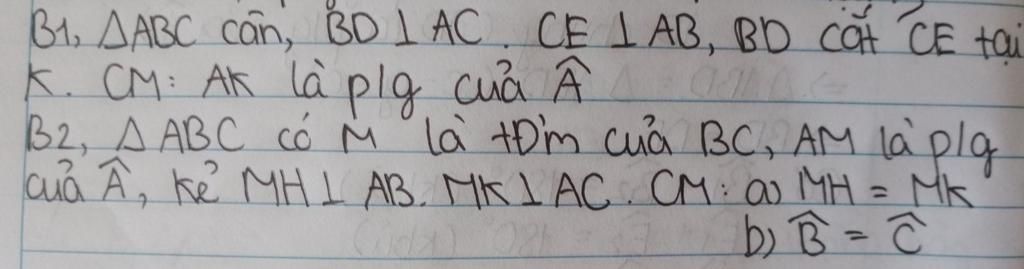 B1, ΔABC cân, BD ⊥ AC. CE ⊥ AB, BD cắt CE tại
K. CM: AK là p/g của Â
B2, Δ ABC có M là tĐ'm của BC, AM là p/g
của Â, kẻ MH ⊥ AB. MK ⊥ AC. CM: a) MH = MK
b) B̂ = Ĉ